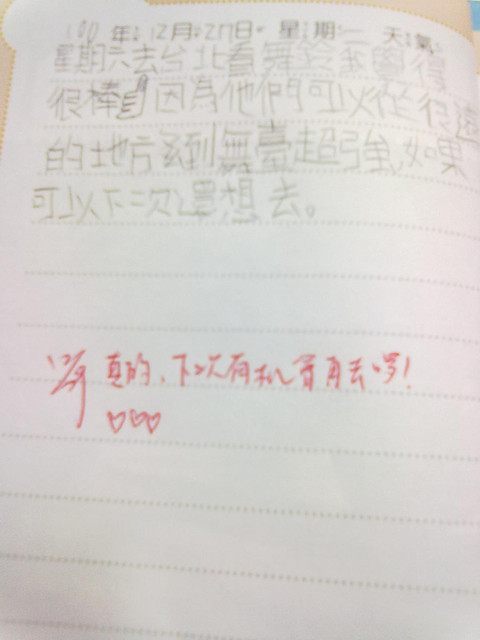 100年12月27日 星期二 天氣
星期六去台北看舞鈴我覺得
很棒因為他們可以從很遠
的地方到無臺超強,如果
可以下次還想去。
真的,下次有机會再去啰!
♡♡♡